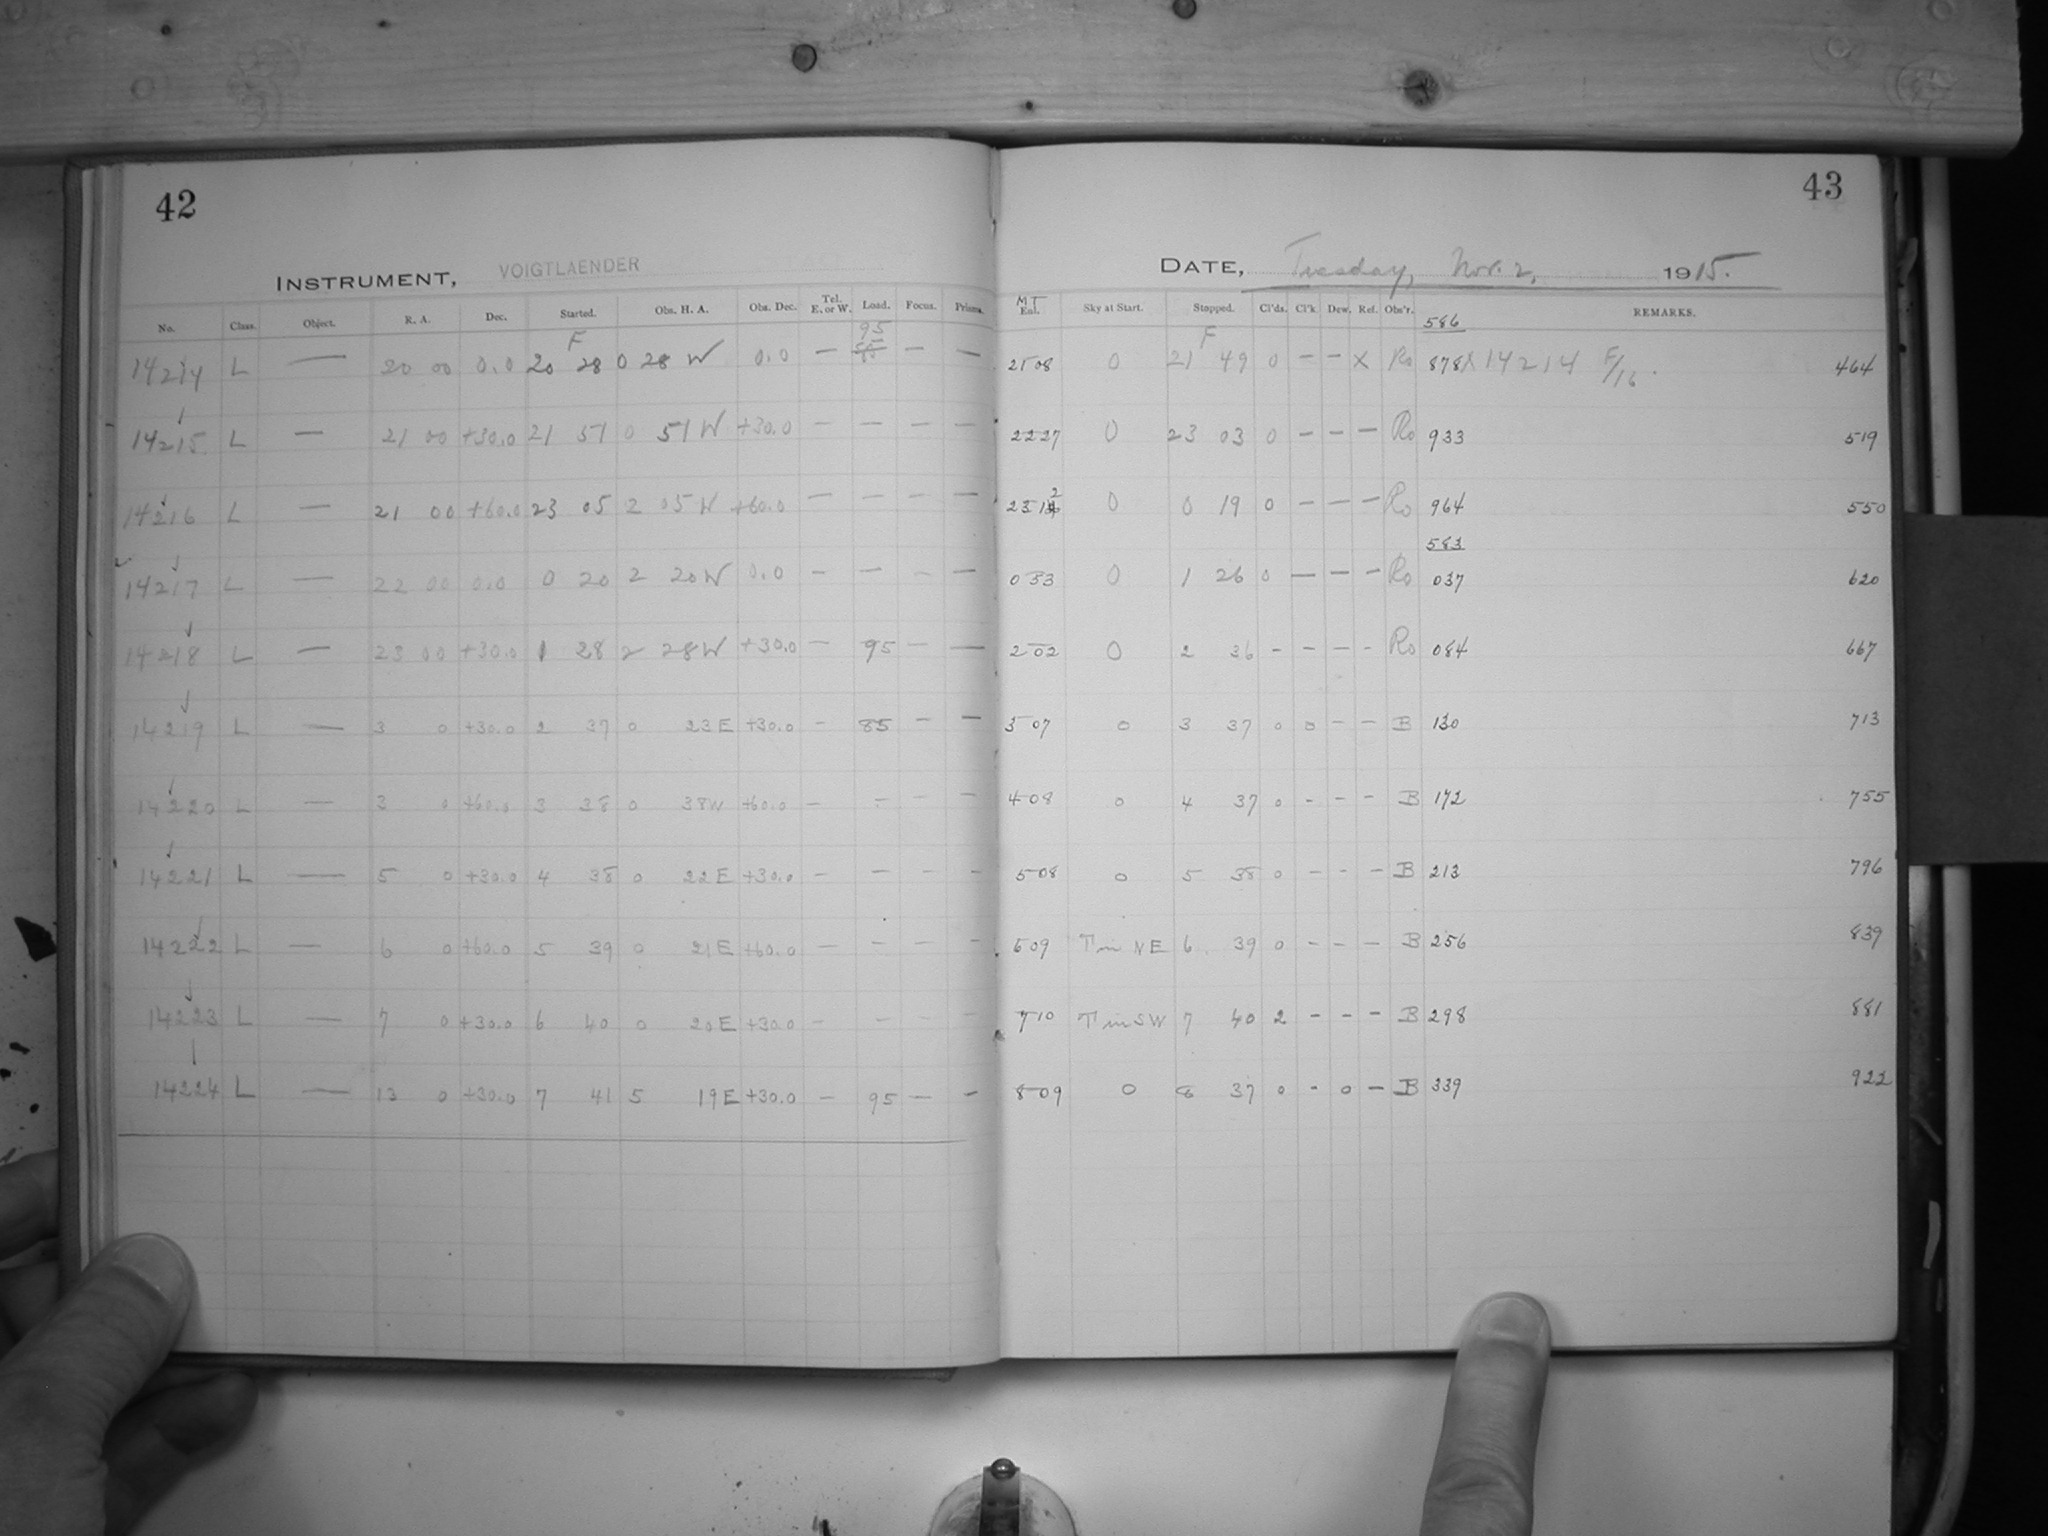 42
INSTRUMENT, VOIGTLAENDER
No. Class. Object. R. A. Dec. Started. Obs. H. A. Obs. Dec. Tel. E. or W. Load. Focus. Prisms.
F 95
14214 L — 20 00 0.0 20 28 0 28 W 0.0 — 85 — —
14215 L — 21 00 +30.0 21 51 0 51 W +30.0 — — — —
14216 L — 21 00 +60.0 23 05 2 05 W +60.0 — — — —
14217 L — 22 00 0.0 0 20 2 20 W 0.0 — — — —
14218 L — 23 00 +30.0 1 28 2 28 W +30.0 — 95 — —
14219 L — 3 0 +30.0 2 37 0 23 E +30.0 — 85 — —
14220 L — 3 0 +60.0 3 38 0 38 W +60.0 — — — —
14221 L — 5 0 +30.0 4 38 0 22 E +30.0 — — — —
14222 L — 6 0 +60.0 5 39 0 21 E +60.0 — — — —
14223 L — 7 0 +30.0 6 40 0 20 E +30.0 — — — —
14224 L — 13 0 +30.0 7 41 5 19 E +30.0 — 95 — —
43
DATE, Tuesday, Nov. 2, 1915.
MT
Enl. Sky at Start. Stopped. Cl'ds. Cl'k. Dew. Ref. Obs'r. REMARKS.
F 586
21 08 0 21 49 0 — — X Ro 878 X 14214 F/16. 464
22 27 0 23 03 0 — — — Ro 933 519
0 0 19 0 — — — Ro 964 550
583
0 53 0 1 26 0 — — — Ro 037 620
2 02 0 2 36 - — — - Ro 084 667
3 07 0 3 37 0 0 — — B 130 713
4 08 0 4 37 0 - - - B 172 755
5 08 0 5 38 0 - - — B 213 796
6 09 T in NE 6 39 0 - - — B 256 839
7 10 T in SW 7 40 2 - - - B 298 881
8 09 0 8 37 0 - 0 — B 339 922